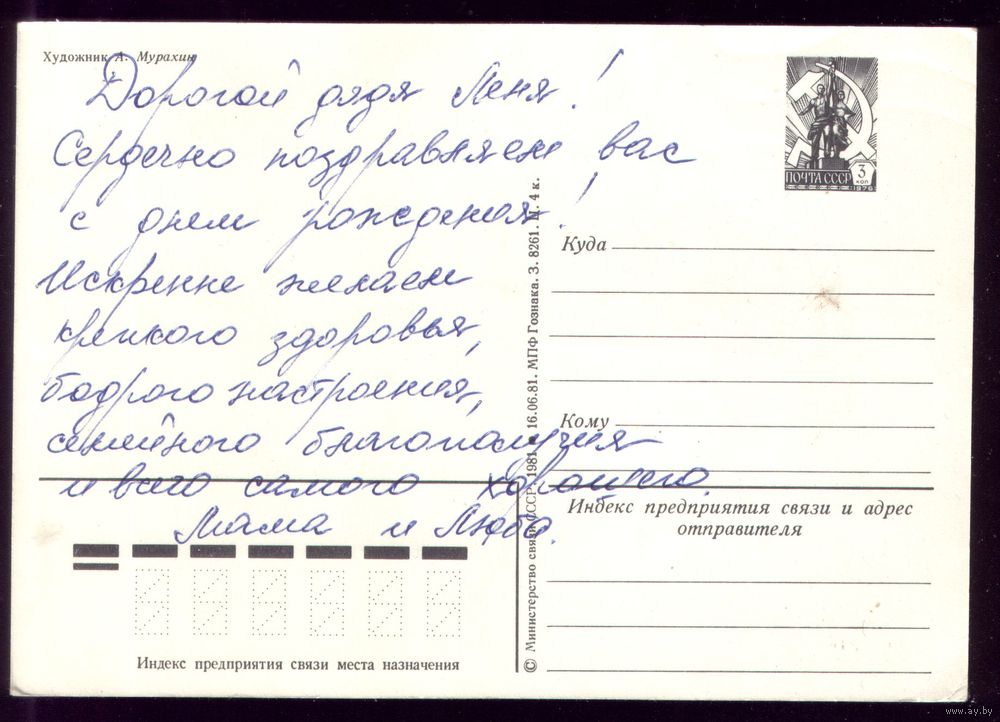 Художник А. Мурахин
Дорогой дядя Лёня!
Сердечно поздравляем вас
с днем рождения!
Искренне желаем
крепкого здоровья,
бодрого настроения,
семейного благополучия
и всего самого хорошего.
Мама и Люба.
ПОЧТА СССР
3
коп
1976
Куда
Кому
Индекс предприятия связи и адрес
отправителя
Индекс предприятия связи места назначения
© Министерство связи СССР. 1981. 16.06.81. МПФ Гознака. З. 8261. Ц. 4 к.
www.ay.by